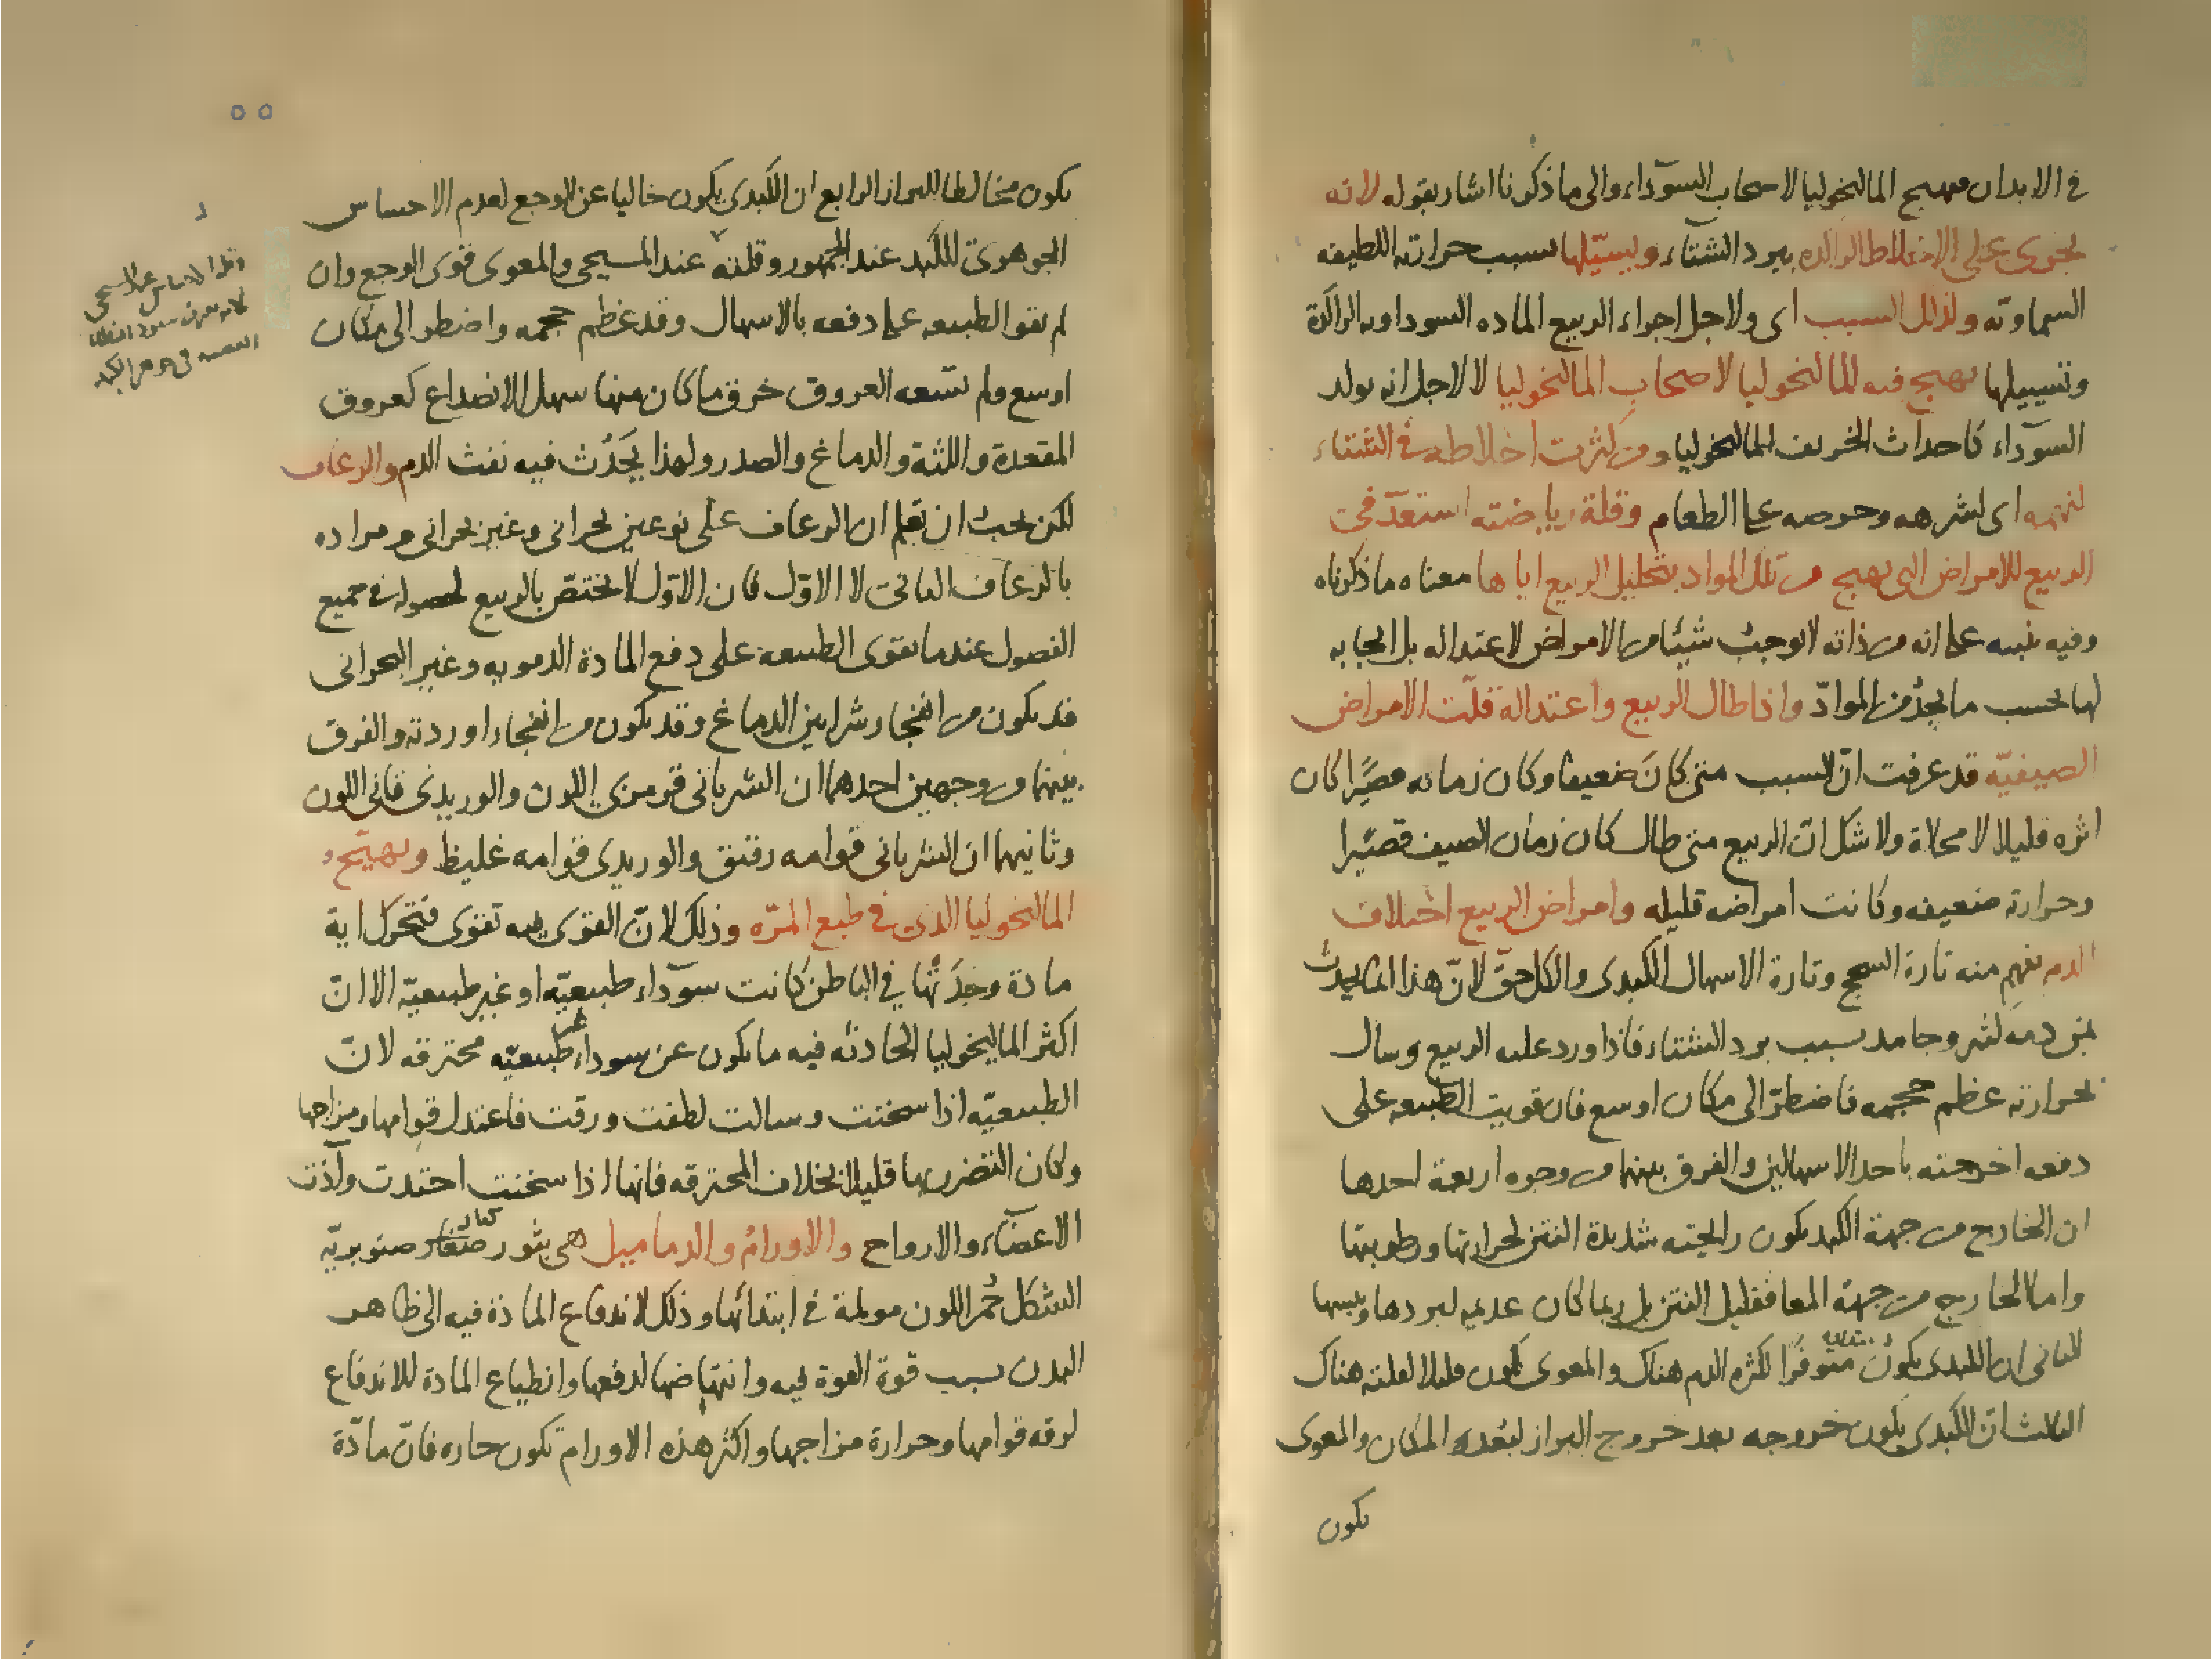 في الابدان فيهيج المالنخوليا لاصحاب السوداء والى ما ذكرنا اشار بقوله لانه
يجرى على الاخلاط الراكده ببرد الشتاء ويسيّلها بسبب حرارته اللطيفه
السماويه ولذلك السبب اى ولاجل اجراء الربيع الماده السوداويه الراكدة
وتسييلها يهيج فيه المالنخوليا لاصحاب المالنخوليا لا لاجل انه يولد
السوداء كاحداث الخريف المالنخوليا ومن كثرت اخلاطه في الشتاء
لنهمه اى لشرهه وحرصه على الطعام وقلة رياضته استعدّ في
الربيع للامراض التى تهيج من تلك المواد بتحليل الربيع اياها معناه ما ذكرناه
وفيه تنبيه على انه من ذاته لا يوجب شيئا من الامراض لاعتداله بل ايجابه
لها بحسب ما يجد من الموادّ واذا طال الربيع واعتداله قلّت الامراض
الصيفيّه قد عرفت انّ السبب متى كان ضعيفا وكان زمانه قصيرا كان
اثره قليلا لا محالة ولا شك ان الربيع متى طال كان زمان الصيف قصيرا
وحرارته ضعيفه وكانت امراضه قليله وامراض الربيع اختلاف
الدم يفهم منه تارة السحج وتارة الاسهال الكبدى والكل حقّ لانّ هذا انما يحدث
لمن دمه كثير وجامد بسبب برد الشتاء فاذا ورد عليه الربيع وسال
بحرارته عظم حجمه فاضطرّ الى مكان اوسع فان قويت الطبيعه على
دفعه اخرجته باحد الاسهالين والفرق بينهما من وجوه اربعة احدها
ان الخارج من جهة الكبد يكون رائحته شديدة النتن لحرارتها ورطوبتها
واما الخارج من جهة المعا فقليل النتن بل ربما كان عديمه لبردها ويبسها
الثانى ان الكبدى يكون متوفرا لكثره الدم هناك والمعوى يكون قليلا لقلته هناك
الثالث انّ الكبدى يكون خروجه بعد خروج البراز لبعد المكان والمعوى
يكون
يكون مخالطا للبراز الرابع ان الكبدى يكون خاليا عن الوجع لعدم الاحساس
الجوهرى للكبد عند الجمهور وقلته عند المسيحى والمعوى قوى الوجع وان
لم تقو الطبيعه على دفعه بالاسهال وقد عظم حجمه واضطر الى مكان
اوسع ولم تسعه العروق خرق ما كان منها سهل الانصداع كعروق
المقعدة واللثة والدماغ والصدر ولهذا يحدث فيه نفث الدم والرعاف
لكن يجب ان تعلم ان الرعاف على نوعين بحرانى وغير بحرانى ومراده
بالرعاف الثانى لا الاول فان الاوّل لا يختصّ بالربيع لحصوله في جميع
الفصول عندما تقوى الطبيعه على دفع المادة الدمويه وغير البحرانى
قد يكون من انفجار شرايين الدماغ وقد يكون من انفجار اوردته والفرق
بينهما من وجهين احدهما ان الشريانى قرمزى اللون والوريدى قانى اللون
وثانيهما ان الشريانى قوامه رقيق والوريدى قوامه غليظ ويهيّج
المالنخوليا الذى في طبع المرّه وذلك لانّ القوى فيه تقوى فتحرك اية
مادة وجدتها في الباطن كانت سوداء طبيعيّه او غير طبيعيّه الا انّ
اكثر الماليخوليا الحادثه فيه ما يكون عن سوداء غير طبيعيّه محترقه لان
الطبيعيّه اذا سخنت وسالت لطفت ورقت فاعتدل قوامها ومزاجها
وكان التضرر بها قليلا بخلاف المحترقه فانها اذا سخنت احتدت وآذت
الاعضاء والارواح والاورام والدماميل هى بثور كبار صغار صنوبريّه
الشكل حُمر اللون مولمة في ابتدائها وذلك لاندفاع المادة فيه الى ظاهر
البدن بسبب قوة القوة فيه وانتهاضها لدفعها وانطياع المادة للاندفاع
لرقه قوامها وحرارة مزاجها واكثر هذه الاورام تكون حاره فانّ مادّة